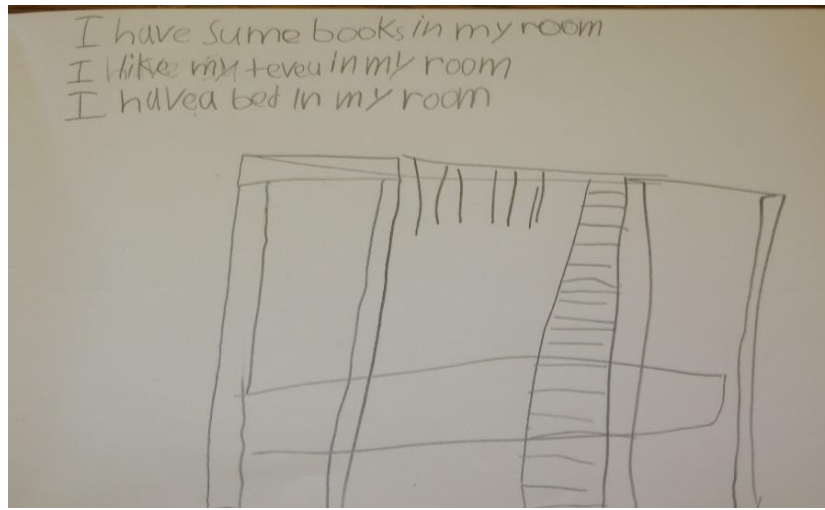 I have sume books in my room
I like my teveu in my room
I havea bed in my room